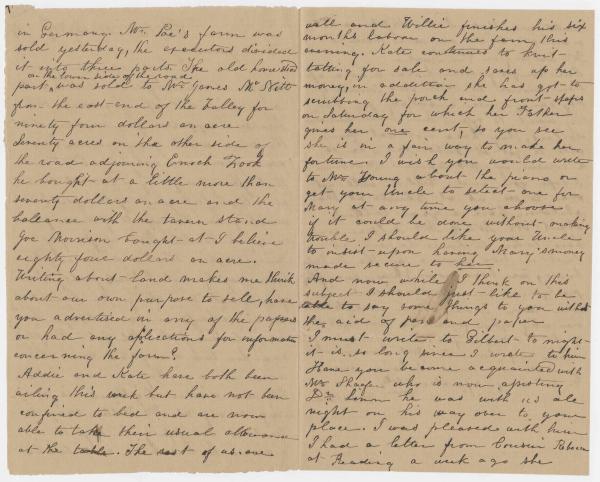 in Germany. Mr. Lee's farm was
sold yesterday, the executors divided
it into three parts The old homestead
on the town side of the road
part, was sold to Mr James McNitt
from the east-end of the Valley for
ninety four dollars an acre.
Seventy acres on the other side of
the road adjoining Enoch Zook
he bought at a little more than
seventy dollars an acre and the
balleance with the tavern stand
Joe Morrison bought at I believe
eighty four dollars an acre.
Writing about land makes me think
about our own purpose to sell, have
you advertised in any of the papers
or had any applications for information
concerning the farm?
Addie and Kate have both been
ailing this week but have not been
confined to bed and are now
able to take their usual allowance
at the table. The rest of us are
well and Willie finishes his six
months labour on the farm this
evening. Kate continues to knit
tatting for sale and saves up her
money, in addition she has got to
scrubbing the porch and front steps
on Saturday for which her Father
gives her one cent, so you see
she is in a fair way to make her
fortune. I wish you would write
to Mr Young about the piano or
get your Uncle to select one for
Mary at any time you choose
if it could be done without making
trouble. I should like your Uncle
to insist upon having Mary's money
made secure to her.
And now while I think on this
subject I should just like to be
able to say some things to you without
the aid of pen and paper
I must write to Gilbert to night
it is so long since I wrote to him
Have you become acquainted with
Mr Sharpe who is now assisting
Dr Linn he was with us all
night on his way over to your
place. I was pleased with him
I had a letter from Cousin Rebecca
at Reading a week ago she